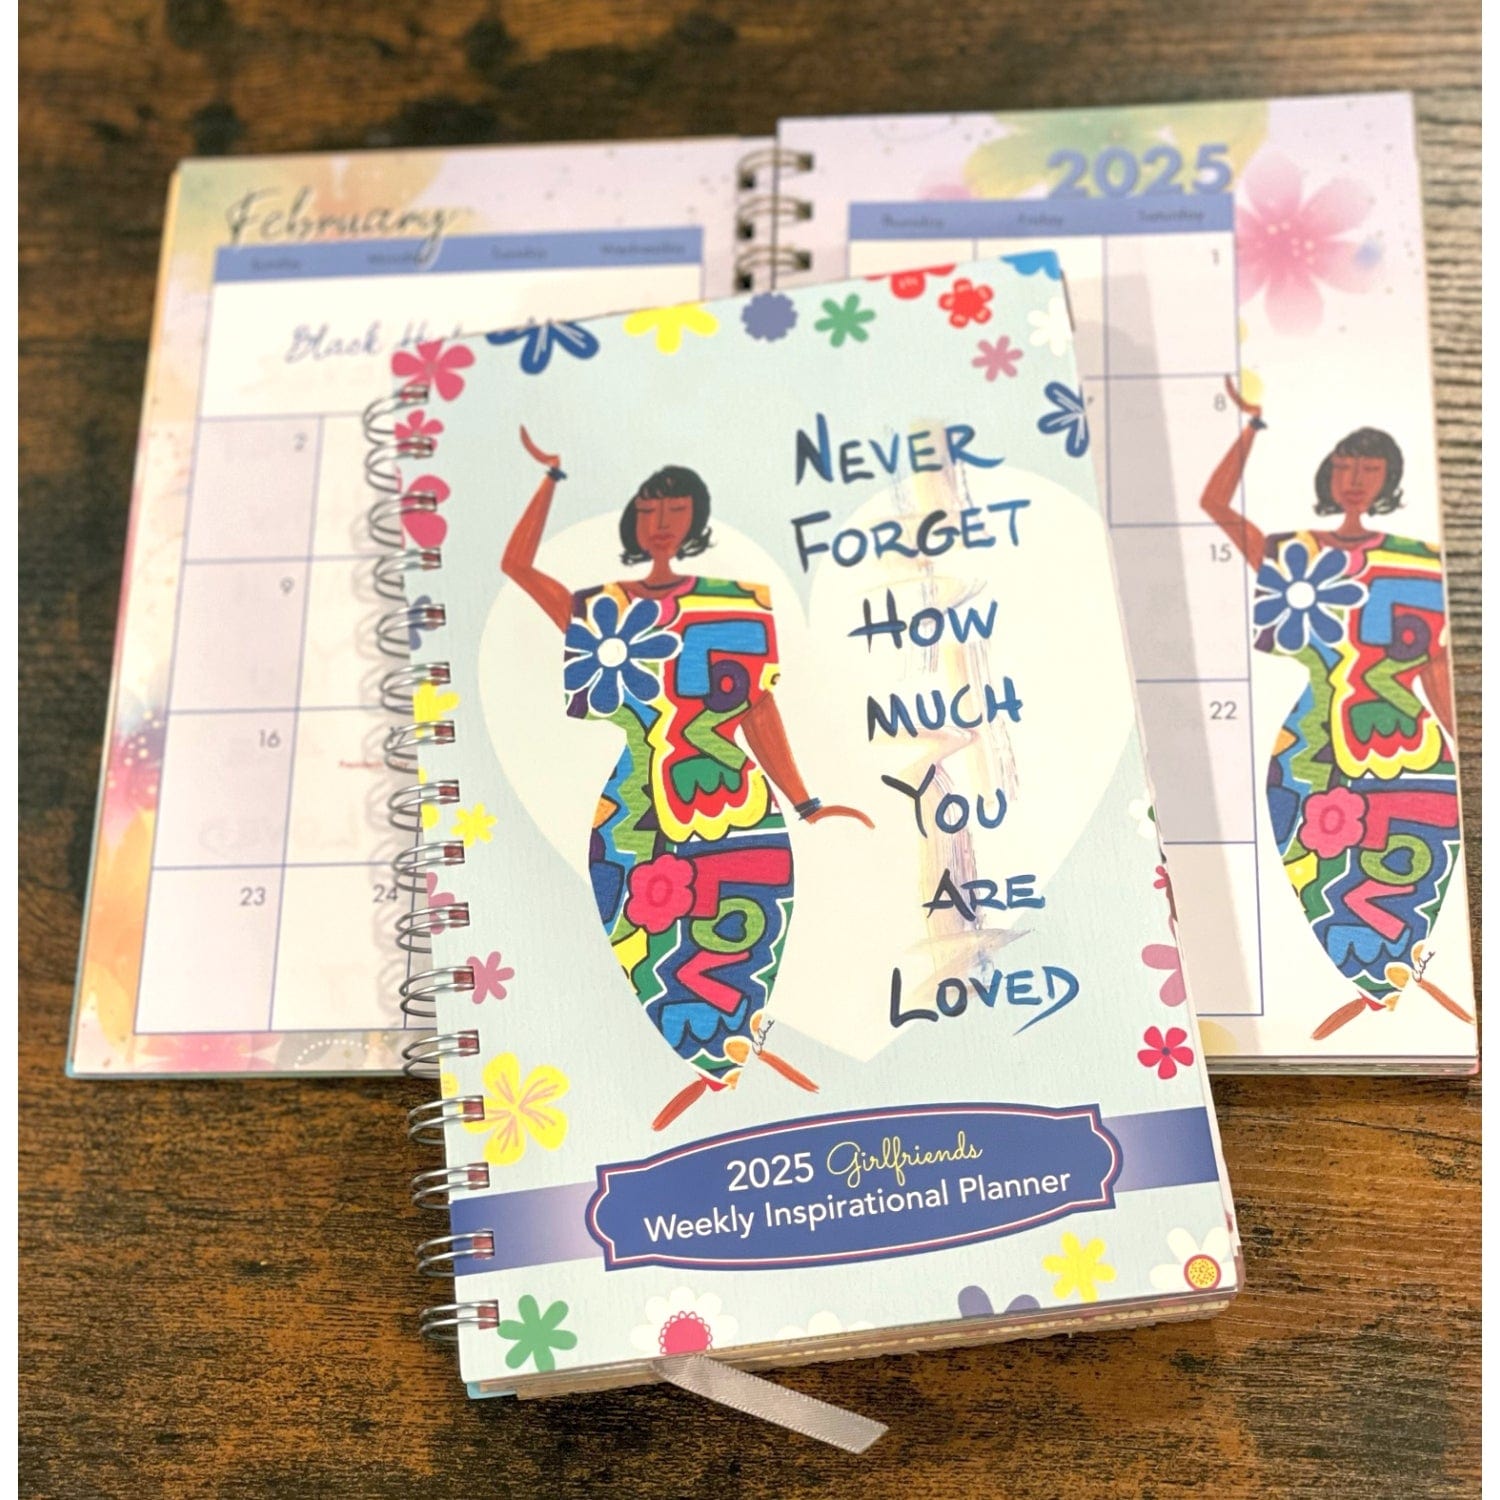 February
2025
Sunday Monday Tuesday Wednesday
Thursday Friday Saturday
1
Black
2
8
9
15
16
22
23
24
NEVER
FORGET
HOW
MUCH
YOU
ARE
LOVED
LOVE
LOVE
LOVE
LOVE
2025 Girlfriends
Weekly Inspirational Planner